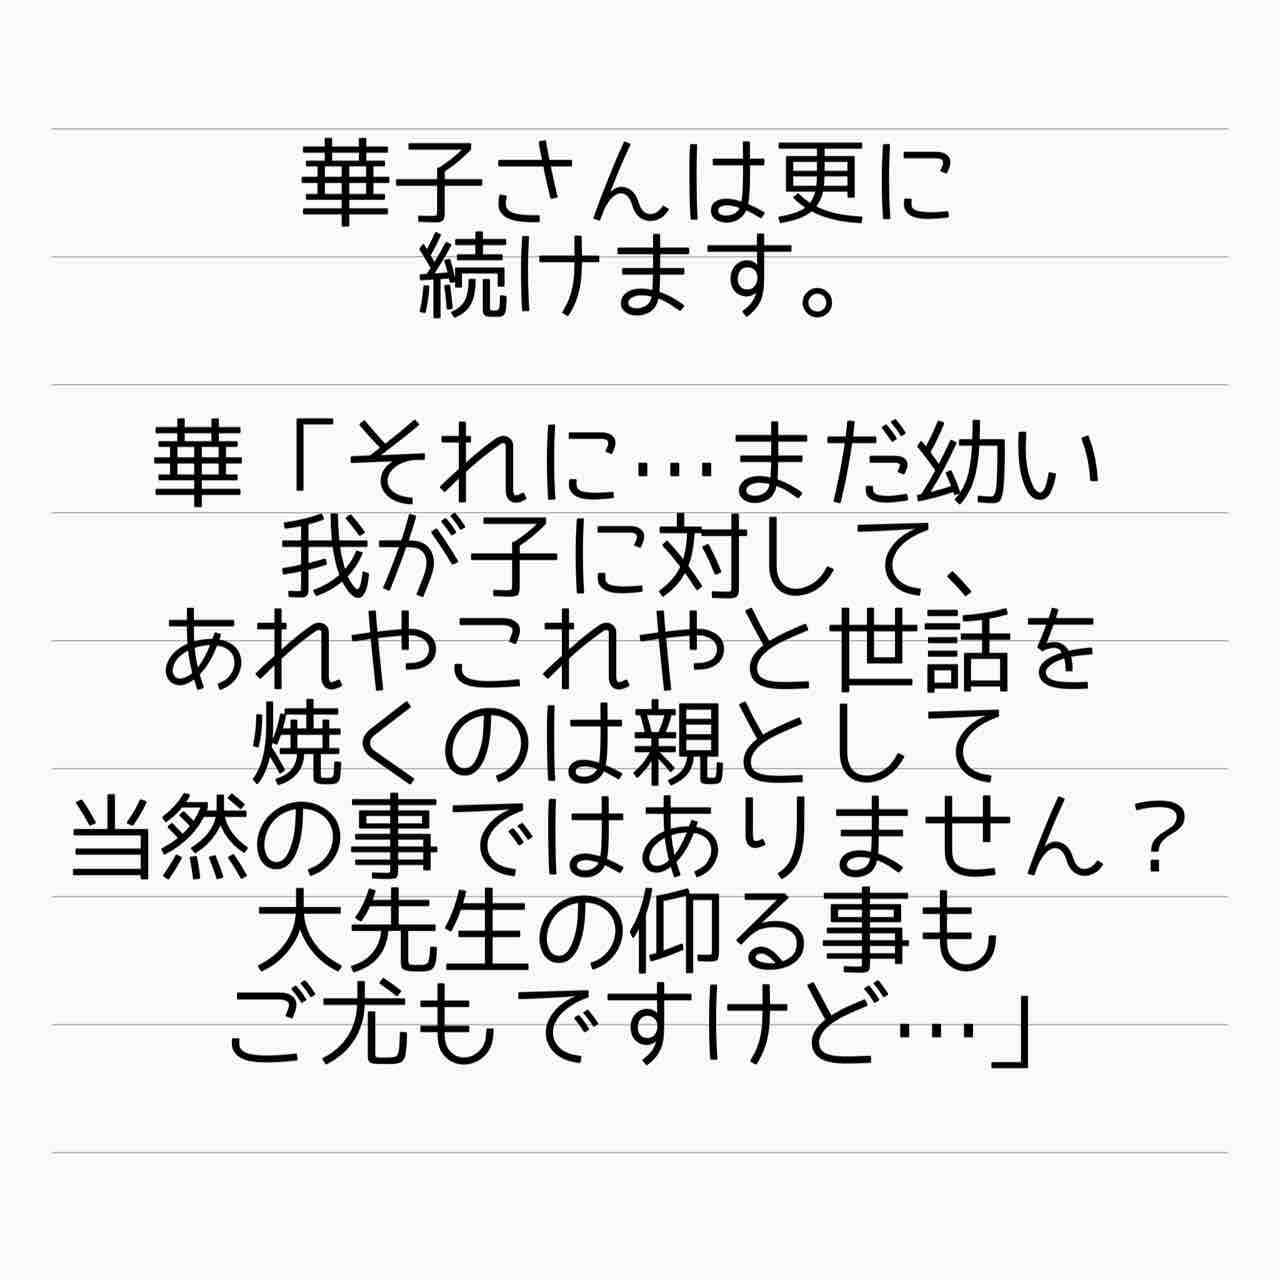 華子さんは更に
続けます。
華「それに…まだ幼い
我が子に対して、
あれやこれやと世話を
焼くのは親として
当然の事ではありません？
大先生の仰る事も
ご尤もですけど…」